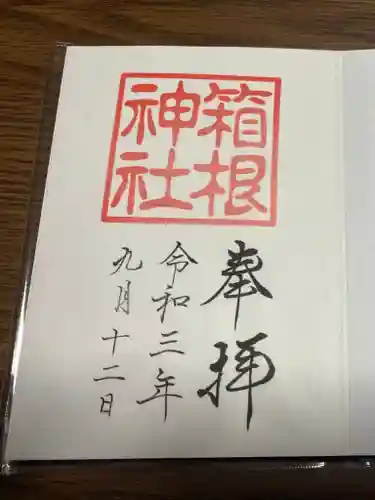 箱根
神社
奉拝
令和三年
九月十二日